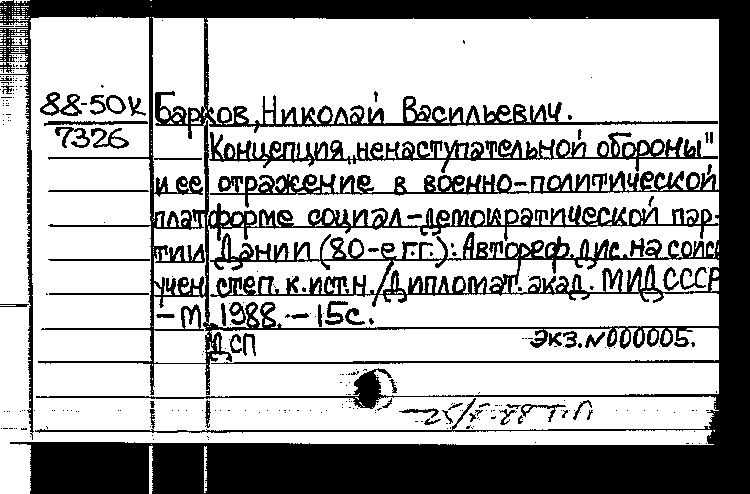 88-50к
7326
Барков, Николай Васильевич.
Концепция „ненаступательной обороны"
и ее отражение в военно-политической
платформе социал-демократической пар-
тии Дании (80-е г.г.): Автореф. дис. на соиск
учен степ. к. ист. н. / Дипломат. акад. МИД СССР
- М. 1988. - 15с.
ДСП
Экз. N 000005.